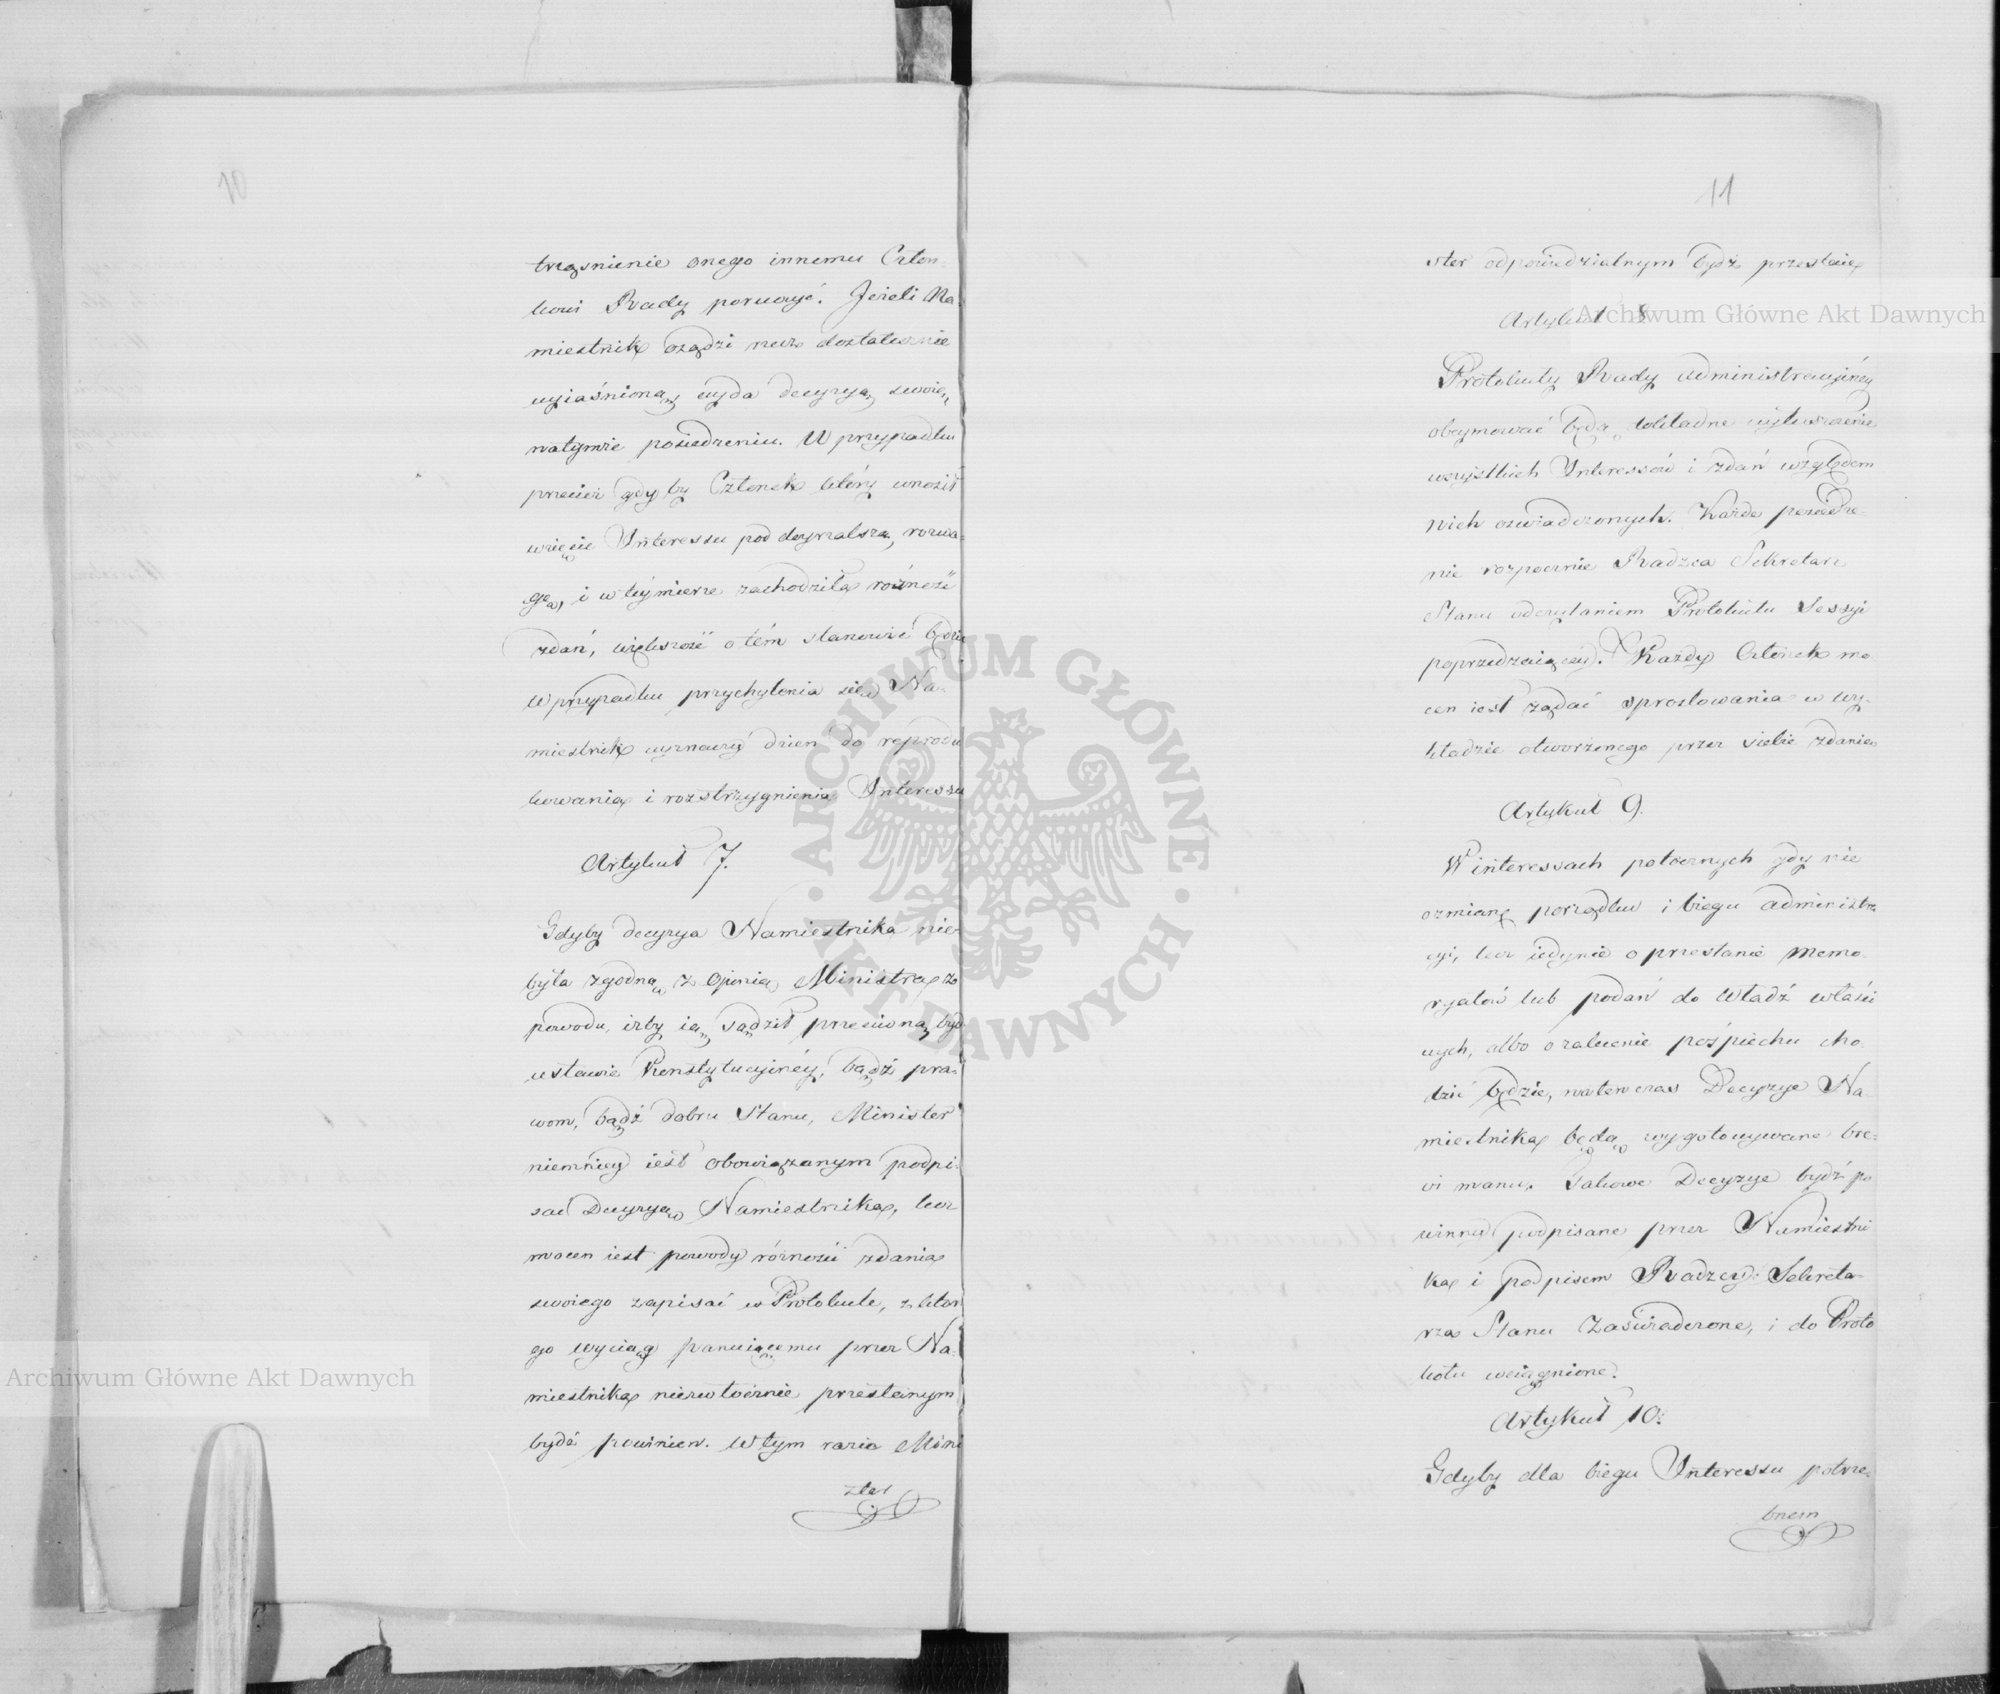 trząsnienie onego innemu Człon-
kowi Rady poruczyć. Jeżeli Na-
miestnik osądzi rzecz dostatecznie
wyiaśnioną, wyda decyzyą swoię
natymże posiedzeniu. W przypadku
przecież gdyby Członek który wnosił
wzięcie Interessu pod doyrzalszą rozwa-
gę, i w téymierze zachodziła różność
zdań, większość otém stanowić będzie
W przypadku przychylenia się Na-
miestnik wyznaczy dzien do roztrzą
kowania i rozstrzygnienia Interessu
Artykuł 7.
Gdyby decyzya Namiestnika nie-
była zgodną z Opinią Ministra z
powodu, iżby ią sądził przeciwną bądź
ustawie Konstytucyiney, bądź pra-
wom, bądź dobru Stanu, Minister
niemniey iest obowiązanym podpi-
sać Decyzyą Namiestnika, lecz
mocen iest powody różności zdania
swoiego zapisać w Protokule, z któr
go wyciąg panuiącemu przez Na-
miestnika niezwłócznie przesłanym
bydź powinien. W tym razie Mini
ster
11
ster odpowiedzialnym bydź przestaie
Artykuł 8
Protokuły Rady administracyiney
obeymować będą dokładne wyłuszczenie
wszystkich Interessów i zdań względem
nich oswiadczonych. Każde posiedze-
nie rozpocznie Radzca Sekretarz
Stanu odczytaniem Protokułu Sessyi
poprzedzaiącey. Każdy Członek mo
cen iest żądać sprostowania w wy-
kładzie otworzonego przez siebie zdania
Artykuł 9.
W interessach potocznych gdy nie
ozmianę porządku i biegu administra
cyi, lecz iedynie o przesłanie memo-
ryałów lub podań do Władz właści
wych, albo o zalecenie pośpiechu cho-
dzić będzie, natenczas Decyzye Na-
miestnika będą wygotowywane bre-
vi manu. Takowe Decyzye bydź po
winny podpisane przez Namiestni
ka i podpisem Radzcy Sekreta-
rza Stanu Zaświadczone, i do Proto
kołu wciągnione.
Artykuł 10.
Gdyby dla biegu Interessu potrze-
bnem
Archiwum Główne Akt Dawnych
Archiwum Główne Akt Dawnych
ARCHIWUM GŁÓWNE · AKT DAWNYCH ·